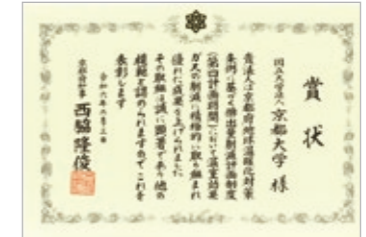 賞状
国立大学法人 京都大学 様
貴法人は京都府地球温暖化対策
条例に基づく排出量削減計画制度
(第四計画期間)において温室効果
ガスの削減に積極的に取り組まれ
優れた成果をあげられました
その取組は誠に顕著であり他の
模範と認められますのでこれを
表彰します
令和六年二月
京都府知事 西脇隆俊